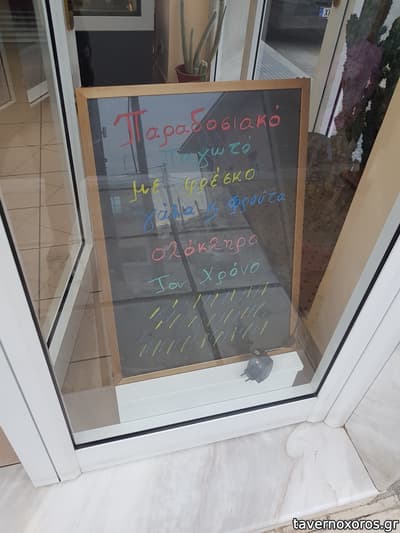 Παραδοσιακό
Παγωτό
με φρέσκο
γάλα & φρούτα
ολόκληρο
Τον χρόνο
tavernoxoros.gr